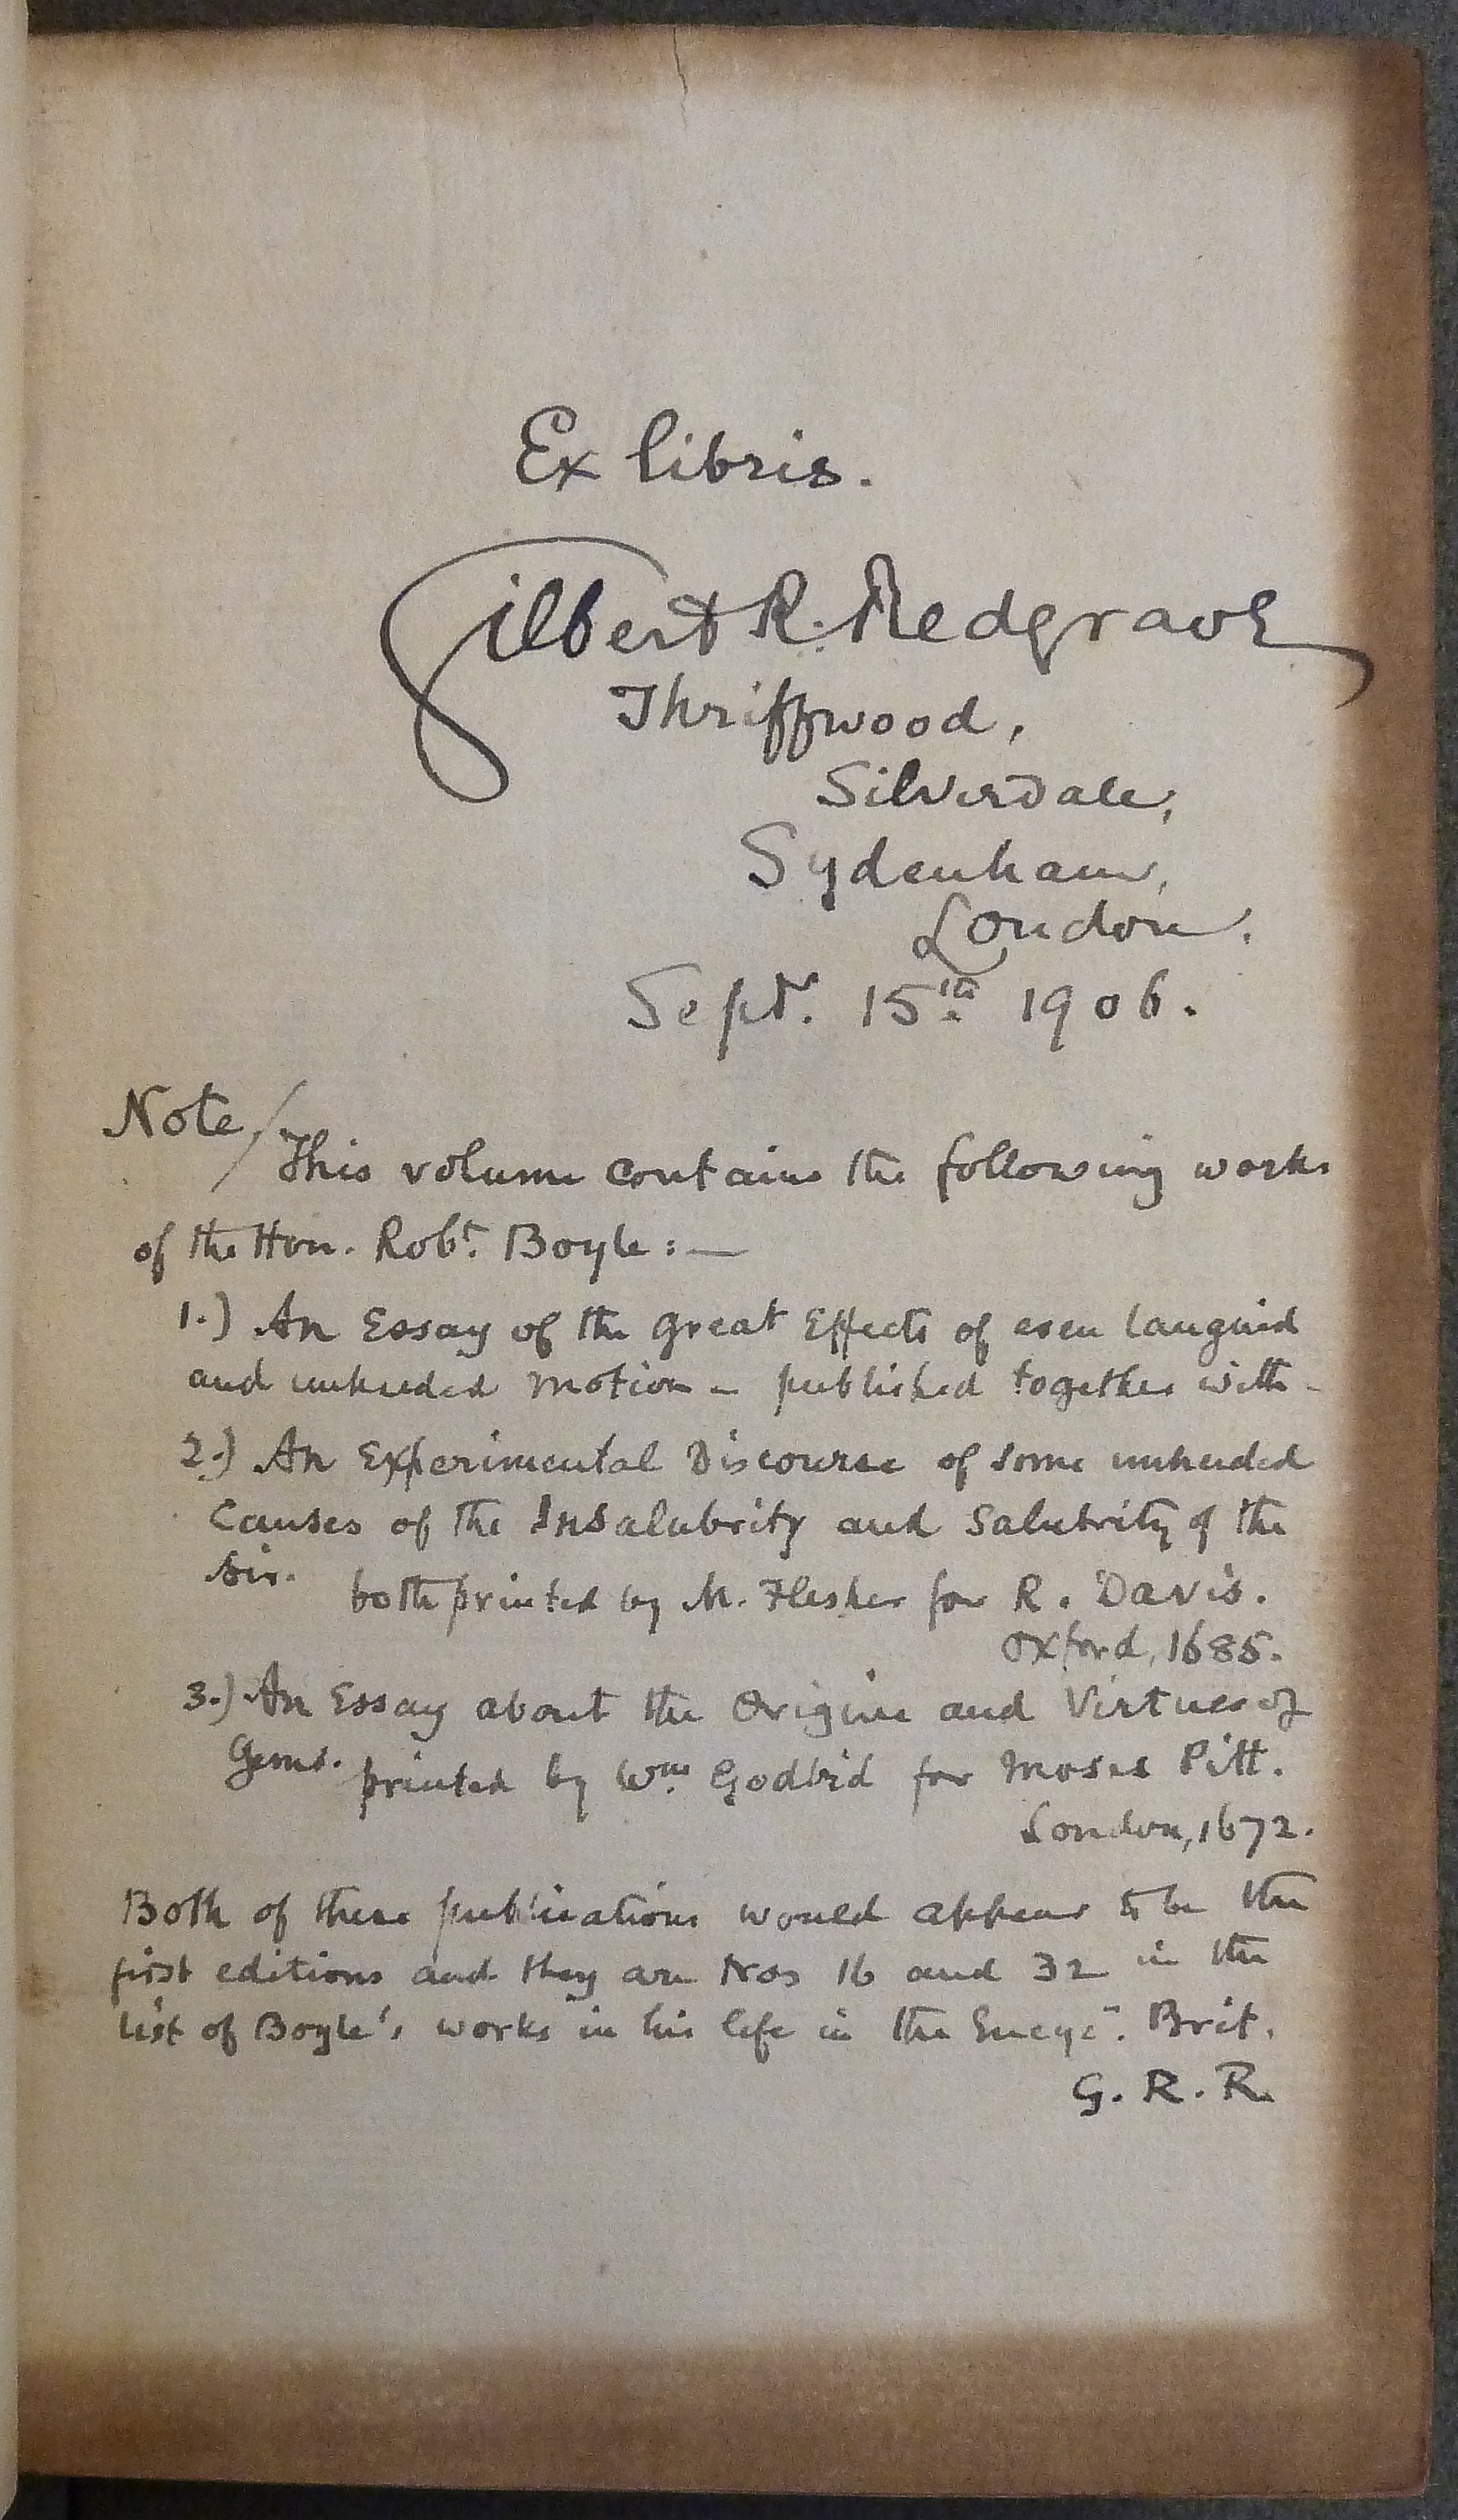 Ex libris.
Gilbert R. Redgrave
Thriffwood,
Silverdale,
Sydenham,
London.
Septr. 15th 1906.
Note/
This volume contains the following works
of the Hon. Robt. Boyle :—
1.) An Essay of the great Effects of even languid
and unheeded motion - published together with -
2.) An Experimental Discourse of some unheeded
Causes of the Insalubrity and Salubrity of the
Air.
both printed by M. Flesher for R. Davis.
Oxford, 1685.
3.) An Essay about the Origine and Virtues of
Gems.
printed by Wm. Godbid for Moses Pitt.
London, 1672.
Both of these publications would appear to be the
first editions and they are Nos 16 and 32 in the
list of Boyle's works in his life in the Encyc. Brit.
G. R. R.